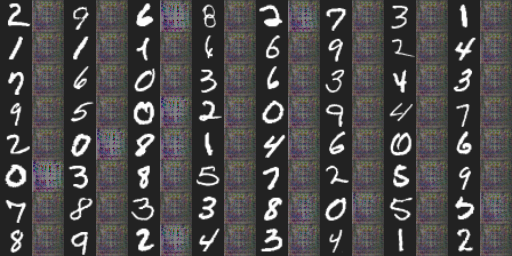 2 9 6 8 2 7 3 1
1 1 1 6 6 9 2 4
7 6 0 3 6 3 4 3
9 5 0 2 0 9 4 7
2 0 8 1 4 6 0 6
0 3 8 5 7 2 5 9
7 8 3 3 8 0 5 5
8 9 2 4 3 4 1 2